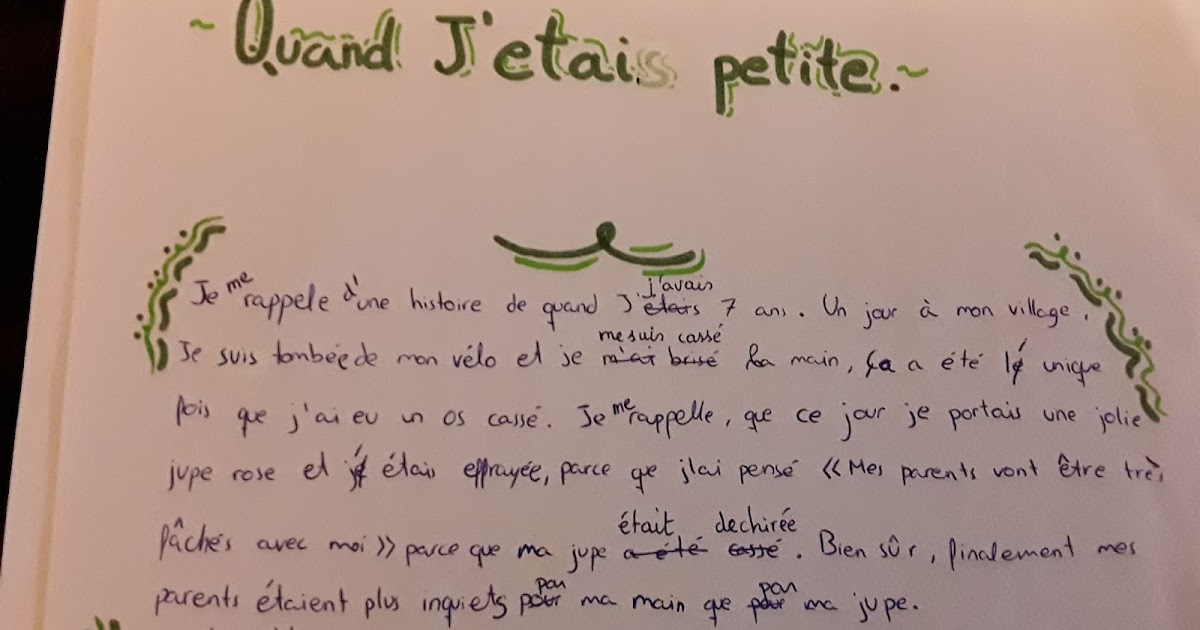 ~ Quand J'etais petite. ~
j'avais
Je me rappele d'une histoire de quand J'étais 7 ans. Un jour à mon village,
me suis cassé
Je suis tombée de mon vélo et je m'ai brisé la main, ça a été l' unique
fois que j'ai eu un os cassé. Je me rappelle, que ce jour je portais une jolie
jupe rose et j' étais effrayée, parce que j'ai pensé << Mes parents vont être très
était dechirée
fâchés avec moi >> parce que ma jupe a été cassé. Bien sûr, finalement mes
par par
parents étaient plus inquiets pour ma main que pour ma jupe.